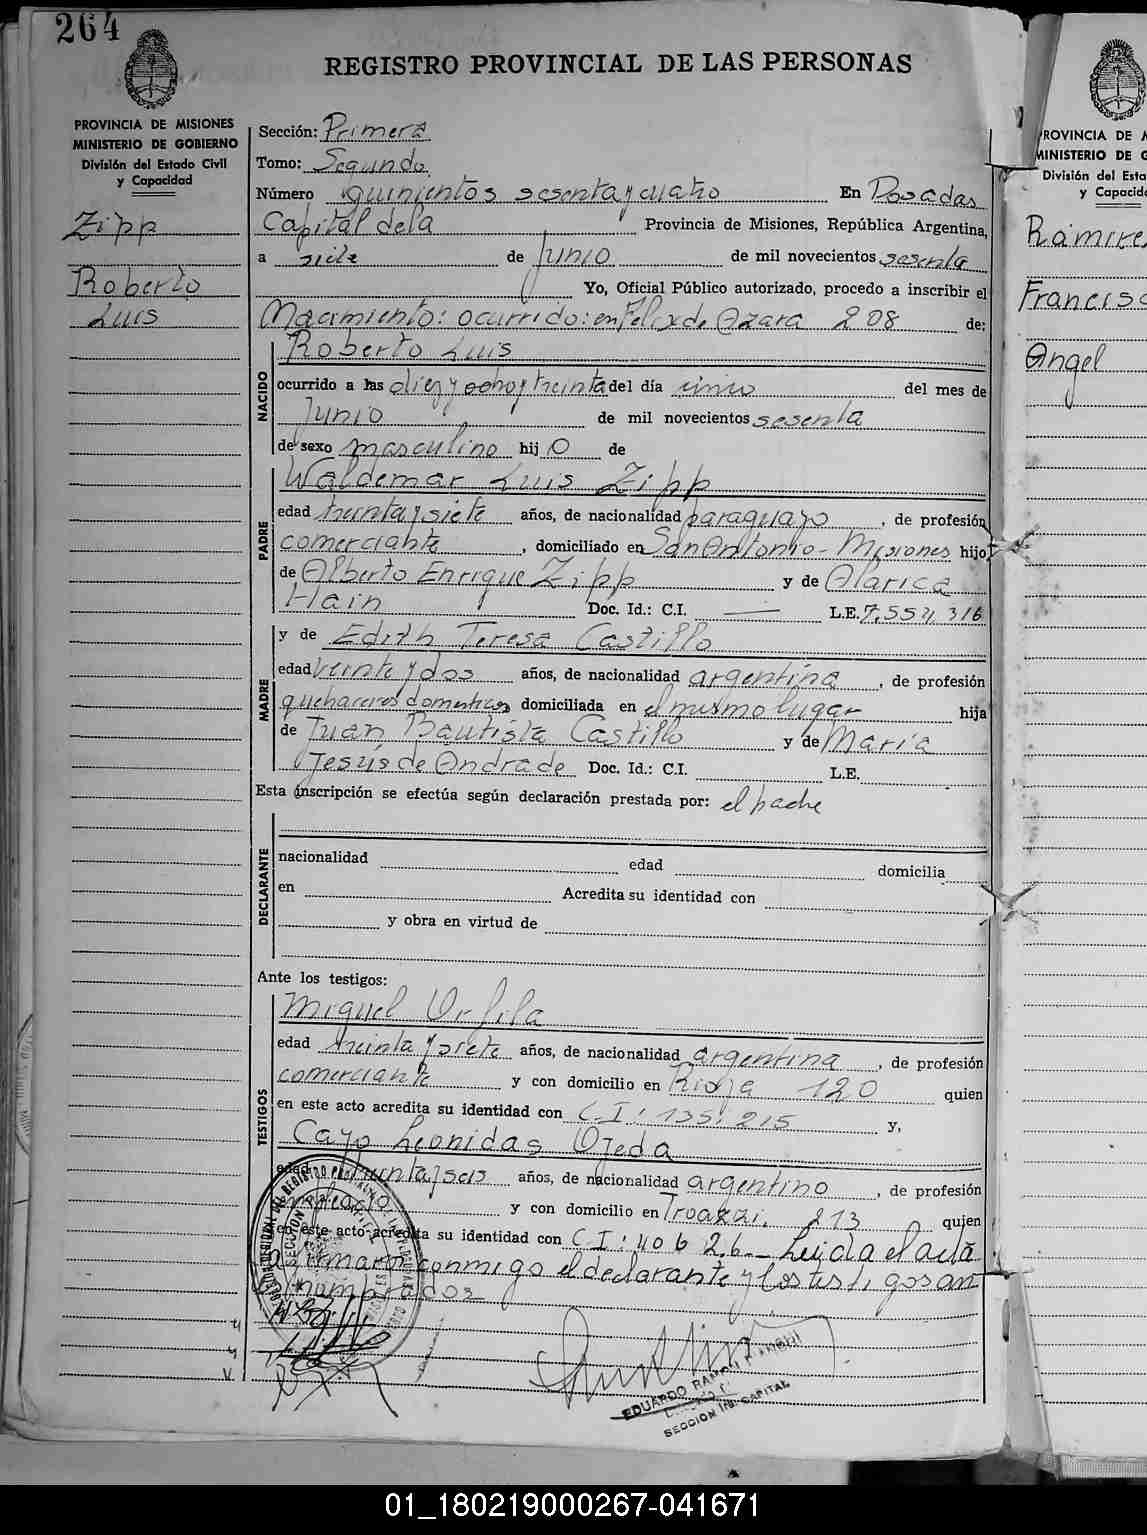 264
REGISTRO PROVINCIAL DE LAS PERSONAS
PROVINCIA DE MISIONES
MINISTERIO DE GOBIERNO
División del Estado Civil
y Capacidad
Zipp
Roberto
Luis
Sección: Primera
Tomo: Segundo
Número quinientos sesenta y cuatro En Posadas
Capital de la Provincia de Misiones, República Argentina,
a siete de Junio de mil novecientos sesenta
Yo, Oficial Público autorizado, procedo a inscribir el
Nacimiento: ocurrido: en Felix de Azara 208 de:
NACIDO
Roberto Luis
ocurrido a las diez y ocho y treinta del día cinco del mes de
Junio de mil novecientos sesenta
de sexo masculino hij o de
PADRE
Waldemar Luis Zipp
edad treinta y siete años, de nacionalidad paraguayo, de profesión
comerciante, domiciliado en San Antonio - Misiones hijo
de Alberto Enrique Zipp y de Alarica
Hain Doc. Id.: C.I. — L.E. 7.554.316
MADRE
y de Edith Teresa Castillo
edad veinte y dos años, de nacionalidad argentina, de profesión
quehaceres domesticos domiciliada en el mismo lugar hija
de Juan Bautista Castillo y de María
Jesús de Andrade Doc. Id.: C.I. L.E.
Esta inscripción se efectúa según declaración prestada por: el padre
DECLARANTE
nacionalidad edad domicilia
en Acredita su identidad con
y obra en virtud de
Ante los testigos:
TESTIGOS
Miguel Orfila
edad treinta y siete años, de nacionalidad argentina, de profesión
comerciante y con domicilio en Rioja 120 quien
en este acto acredita su identidad con C.I: 135:215 y,
Cayo Leonidas Ojeda
edad treinta y seis años, de nacionalidad argentino, de profesión
empleado y con domicilio en Troazzi. 213 quien
en este acto acredita su identidad con C I: 40 6 26.- Leida el acta
firmaron conmigo el declarante y los testigos an
nombrados
EDUARDO RAMON
SECCION 1ra. CAPITAL
PROVINCIA DE M
MINISTERIO DE G
División del Esta
y Capacida
Ramire
Francisc
Angel
01_180219000267-041671